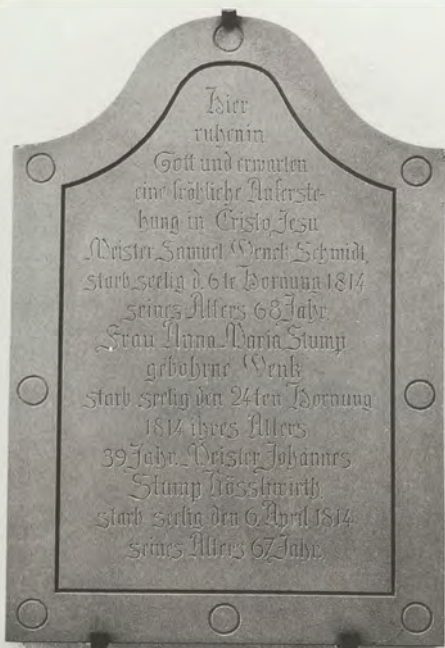 Hier
ruhen in
Gott und erwarten
eine fröhliche Auferste-
hung in Cristo Jesu
Meister Samuel Wenck Schmidt,
starb seelig d. 6te Hornung 1814
seines Alters 68 Jahr.
Frau Anna Maria Stump
gebohrne Wenk
starb seelig den 24ten Hornung
1814 ihres Alters
39 Jahr. Meister Johannes
Stump Rössliwirth,
starb seelig den 6. April 1814
seines Alters 67 Jahr.